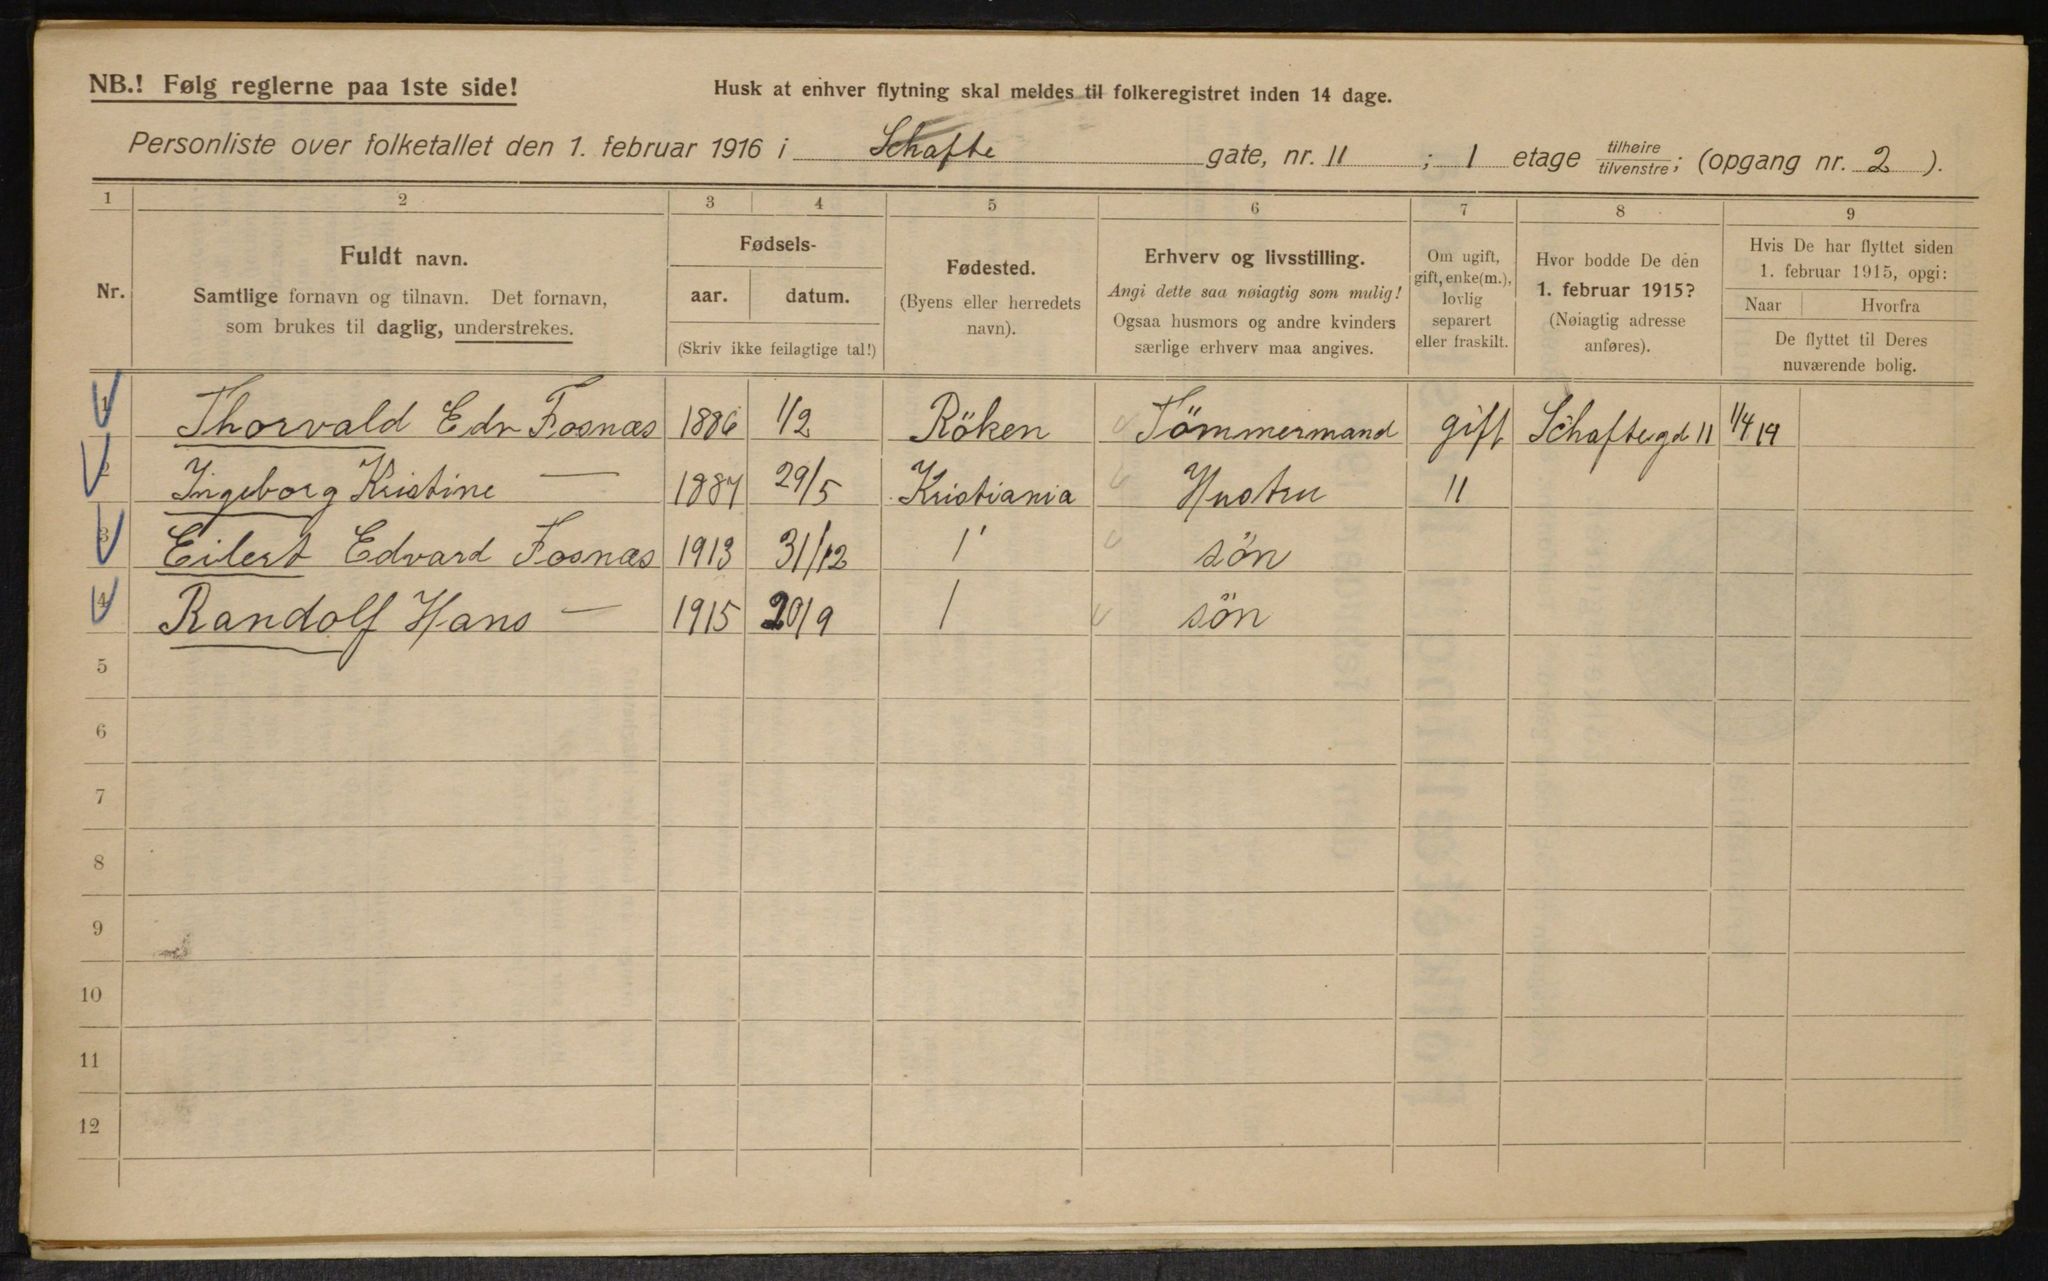 NB.! Følg reglerne paa 1ste side!
Husk at enhver flytning skal meldes til folkeregistret inden 14 dage.
Personliste over folketallet den 1. februar 1916 i Schafte gate, nr. 11 ; 1 etage tilhøire tilvenstre; (opgang nr. 2 ).
1 2 3 4 5 6 7 8 9
Nr.
Fuldt navn.
Samtlige fornavn og tilnavn. Det fornavn,
som brukes til daglig, understrekes.
Fødsels-
aar. datum.
(Skriv ikke feilagtige tal!)
Fødested.
(Byens eller herredets
navn).
Erhverv og livsstilling.
Angi dette saa nøiagtig som mulig!
Ogsaa husmors og andre kvinders
særlige erhverv maa angives.
Om ugift,
gift, enke(m.),
lovlig
separert
eller fraskilt.
Hvor bodde De den
1. februar 1915?
(Nøiagtig adresse
anføres).
Hvis De har flyttet siden
1. februar 1915, opgi:
Naar Hvorfra
De flyttet til Deres
nuværende bolig.
1 Thorvald Edv Fosnæs 1886 1/2 Röken Tömmermand gift Schaftegd 11 1/4 14
2 Ingeborg Kristine — 1887 29/5 Kristiania Hustru 11
3 Eilert Edvard Fosnæs 1913 31/12 1' sön
4 Randolf Hans — 1915 20/9 1 sön
5
6
7
8
9
10
11
12